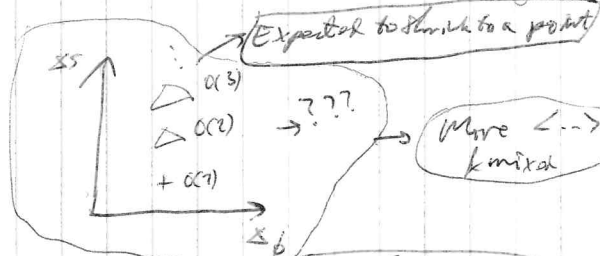 Expected to shrink to a point
O(3)
O(2)
→ ???
+ O(1)
More <...>
k mixed